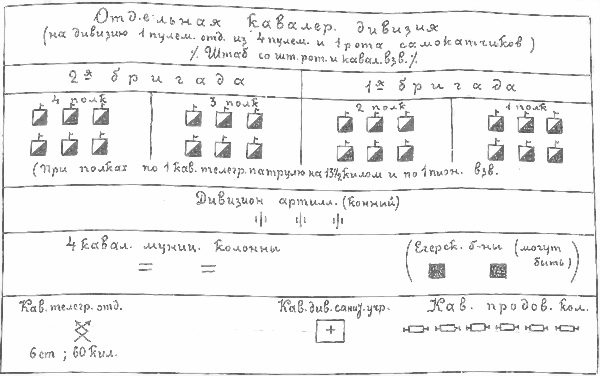 Отдельная кавалер. дивизия
(на дивизию 1 пулем. отд. из 4 пулем. и 1 рота самокатчиков)
٪ Штаб со шт. рот. и кавал. взв. ٪
2ая бригада 1ая бригада
4 полк 3 полк 2 полк 1 полк
(При полках по 1 кав. телегр. патрулю на 13½ килом и по 1 пион. взв.
Дивизион артилл. (конный)
4 кавал. муниц. колонны
(Егерск. б-ны (могут
быть)
Кав. телегр. отд.
6 ст ; 60 кил.
Кав. див. санит. учр.
Кав. продов. кол.